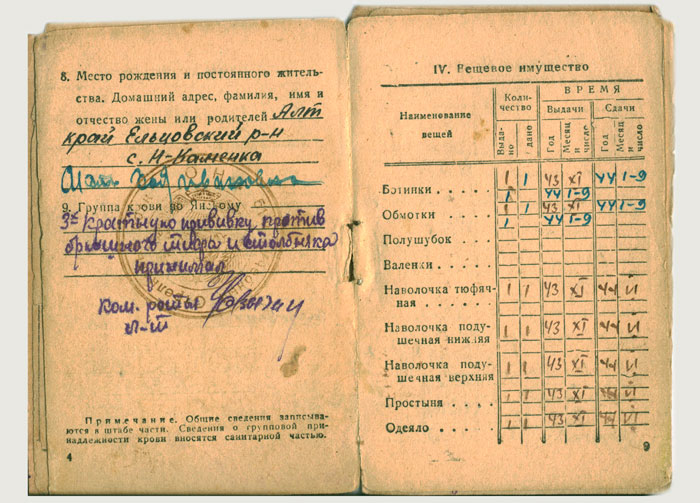 8. Место рождения и постоянного житель-
ства. Домашний адрес, фамилия, имя и
отчество жены или родителей Алт
край Ельцовский р-н
с. Н-Каменка
Ивановна
9. Группа крови по Янскому
3х кратную прививку против
брюшного тифа и столбняка
принимал
Ком. роты
л-т
Примечание. Общие сведения записыва-
ются в штабе части. Сведения о групповой при-
надлежности крови вносятся санитарной частью.
4
IV. Вещевое имущество
Наименование вещей
Коли-
чество
ВРЕМЯ
Выдачи
Сдачи
Выда-
но
Сдано
Год
Месяц и число
Год
Месяц и число
Ботинки . . . . . 1 1 43 XI 44 1-9
1 44 1-9
Обмотки . . . . . 1 1 43 XI 44 1-9
1 44 1-9
Полушубок
Валенки . . . . .
Наволочка тюфяч-
ная . . . . . . 1 1 43 XI 44 VI
Наволочка поду-
шечная нижняя 1 1 43 XI 44 VI
Наволочка поду-
шечная верхняя 1 1 43 XI 44 VI
Простыня . . . . 1 1 43 XI 44 VI
Одеяло . . . . . 1 1 43 XI 44 VI
9